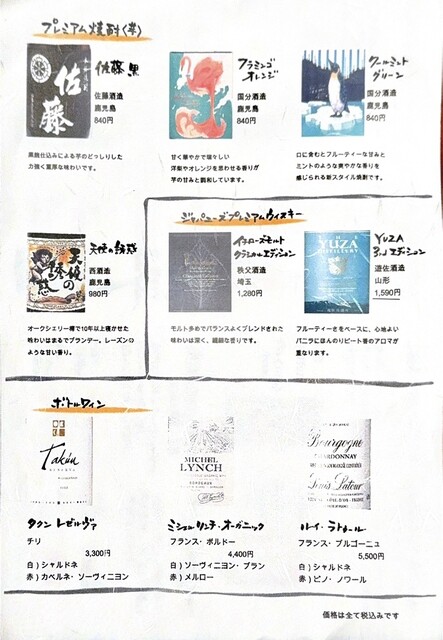 プレミアム焼酎(芋)
佐藤
佐藤 黒
佐藤酒造
鹿児島
840円
黒麹仕込みによる芋のどっしりした
力強く重厚な味わいです。
フラミンゴ
オレンジ
国分酒造
鹿児島
840円
甘く華やかで瑞々しい
洋梨やオレンジを思わせる香りが
芋の甘みと調和しています。
クールミント
グリーン
国分酒造
鹿児島
840円
口に含むとフルーティーな甘みと
ミントのような爽やかな香りを
感じられる新スタイル焼酎です。
天使の誘惑
天使の誘惑
西酒造
鹿児島
980円
オークシェリー樽で10年以上寝かせた
味わいはまるでブランデー。レーズンの
ような甘い香り。
ジャパニーズプレミアムウィスキー
イチローズモルト
クラシカルエディション
秩父酒造
埼玉
1,280円
モルト多めでバランスよくブレンドされた
味わいは深く、繊細な香りです。
YUZA
DISTILLERY
YUZA
3rd エディション
遊佐酒造
山形
1,590円
フルーティーさをベースに、心地よい
バニラにほんのりピート香のアロマが
重なります。
ボトルワイン
Takún
RESERVA
タクン レゼルヴァ
チリ
3,300円
白)シャルドネ
赤)カベルネ・ソーヴィニヨン
MICHEL
LYNCH
BORDEAUX
ミシェル リンチ・オーガニック
フランス・ボルドー
4,400円
白)ソーヴィニヨン・ブラン
赤)メルロー
Bourgogne
CHARDONNAY
Louis Latour
ルイ・ラトゥール
フランス・ブルゴーニュ
5,500円
白)シャルドネ
赤)ピノ・ノワール
価格は全て税込みです